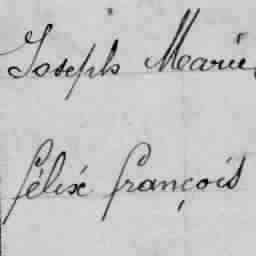 Joseph Marie
félix françois